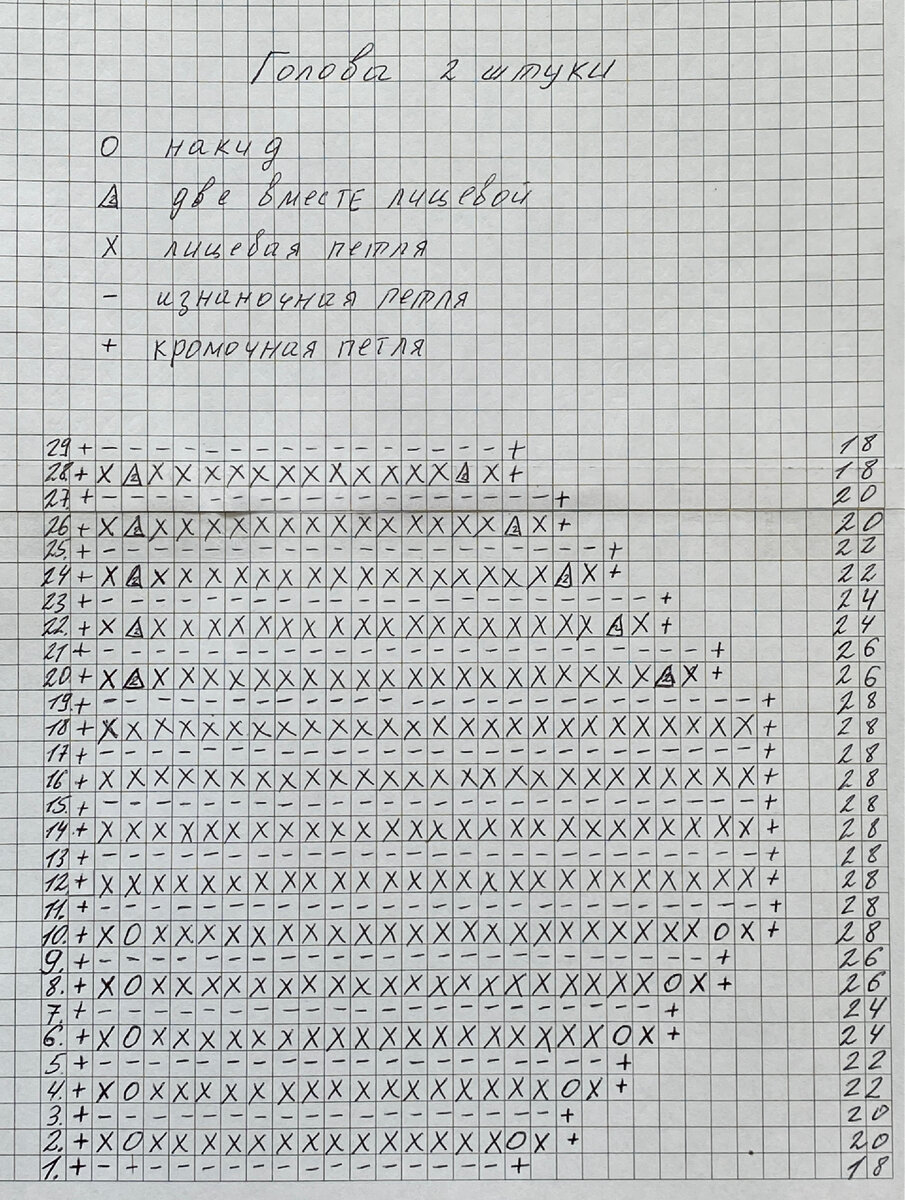 Голова 2 штуки
О накид
△ две вместе лицевой
X лицевая петля
– изнаночная петля
+ кромочная петля
29 + – – – – – – – – – – – – – – – – + 18
28. + X △ X X X X X X X X X X X X △ X + 18
27. + – – – – – – – – – – – – – – – – – – + 20
26 + X △ X X X X X X X X X X X X X X △ X + 20
25. + – – – – – – – – – – – – – – – – – – – – + 22
24 + X △ X X X X X X X X X X X X X X X X △ X + 22
23. + – – – – – – – – – – – – – – – – – – – – – – + 24
22. + X △ X X X X X X X X X X X X X X X X X X △ X + 24
21 + – – – – – – – – – – – – – – – – – – – – – – – – + 26
20. + X △ X X X X X X X X X X X X X X X X X X X X △ X + 26
19. + – – – – – – – – – – – – – – – – – – – – – – – – – – + 28
18 + X X X X X X X X X X X X X X X X X X X X X X X X X X + 28
17 + – – – – – – – – – – – – – – – – – – – – – – – – – – + 28
16 + X X X X X X X X X X X X X X X X X X X X X X X X X X + 28
15 + – – – – – – – – – – – – – – – – – – – – – – – – – – + 28
14. + X X X X X X X X X X X X X X X X X X X X X X X X X X + 28
13 + – – – – – – – – – – – – – – – – – – – – – – – – – – + 28
12. + X X X X X X X X X X X X X X X X X X X X X X X X X X + 28
11. + – – – – – – – – – – – – – – – – – – – – – – – – – – + 28
10. + X O X X X X X X X X X X X X X X X X X X X X X X O X + 28
9. + – – – – – – – – – – – – – – – – – – – – – – – – + 26
8. + X O X X X X X X X X X X X X X X X X X X X X O X + 26
7. + – – – – – – – – – – – – – – – – – – – – – – + 24
6. + X O X X X X X X X X X X X X X X X X X X O X + 24
5. + – – – – – – – – – – – – – – – – – – – – + 22
4. + X O X X X X X X X X X X X X X X X X O X + 22
3. + – – – – – – – – – – – – – – – – – – + 20
2. + X O X X X X X X X X X X X X X X O X + 20
1. + – – – – – – – – – – – – – – – – + 18